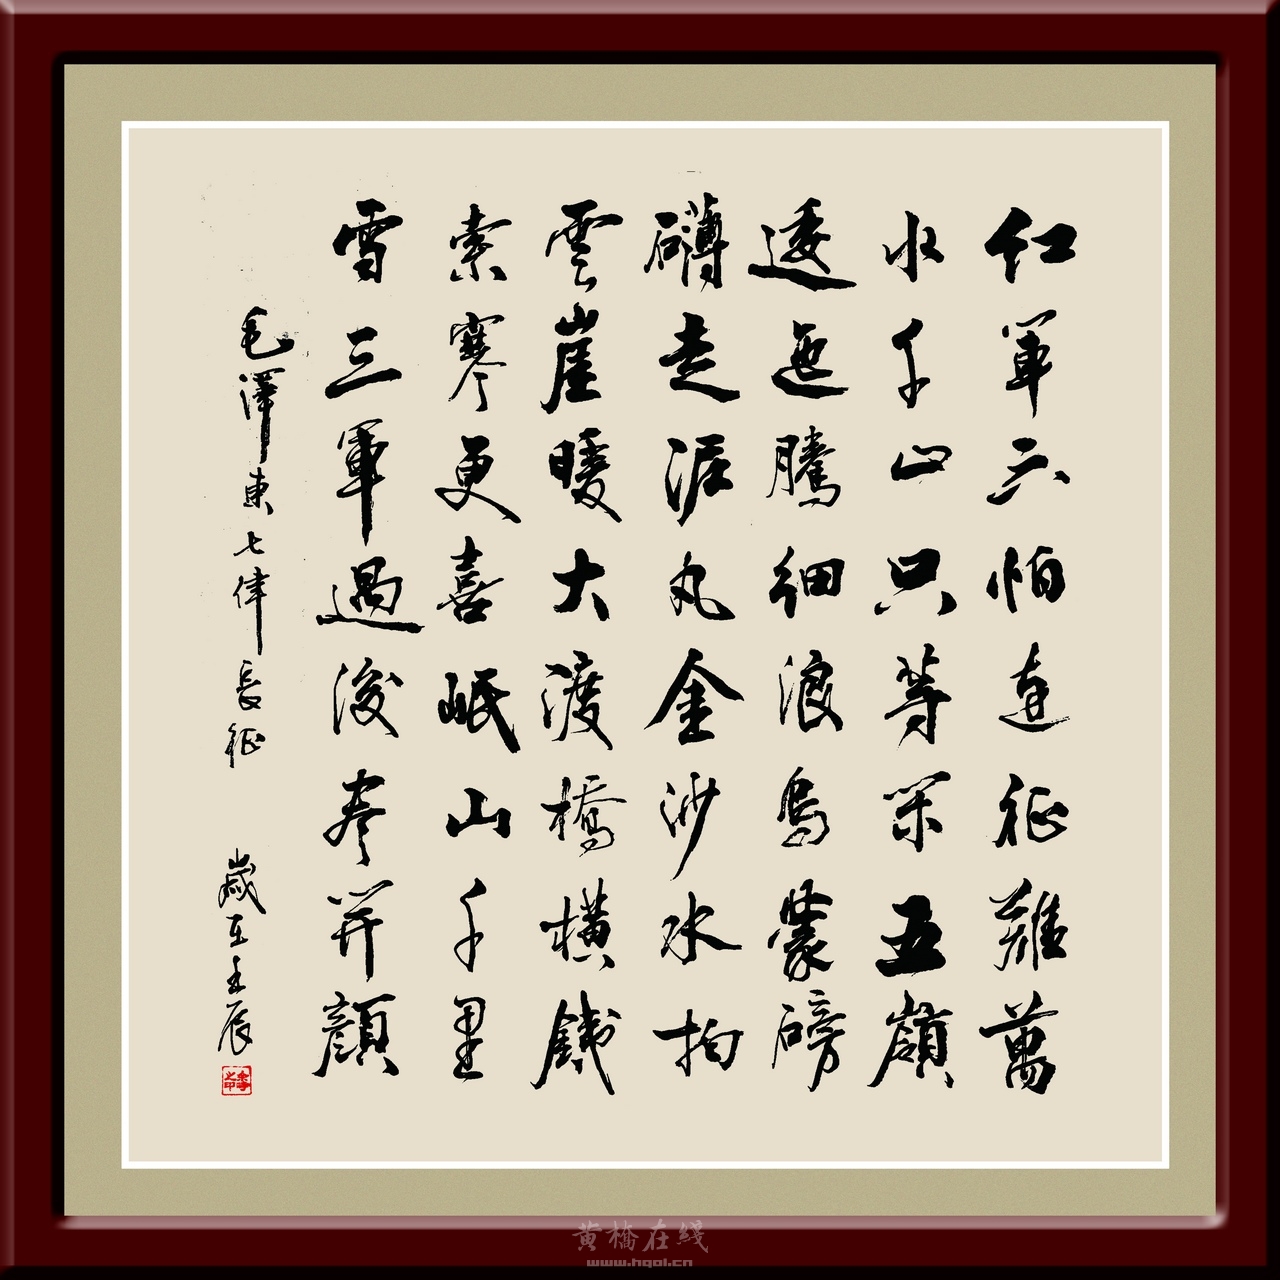 红軍不怕遠征難萬
水千山只等閑五嶺
逶迤騰細浪烏蒙磅
礴走泥丸金沙水拍
雲崖暖大渡橋横鐵
索寒更喜岷山千里
雪三軍過後尽开顔
毛澤東七律長征 歲在壬辰
黄橋在綫
www.hqol.cn